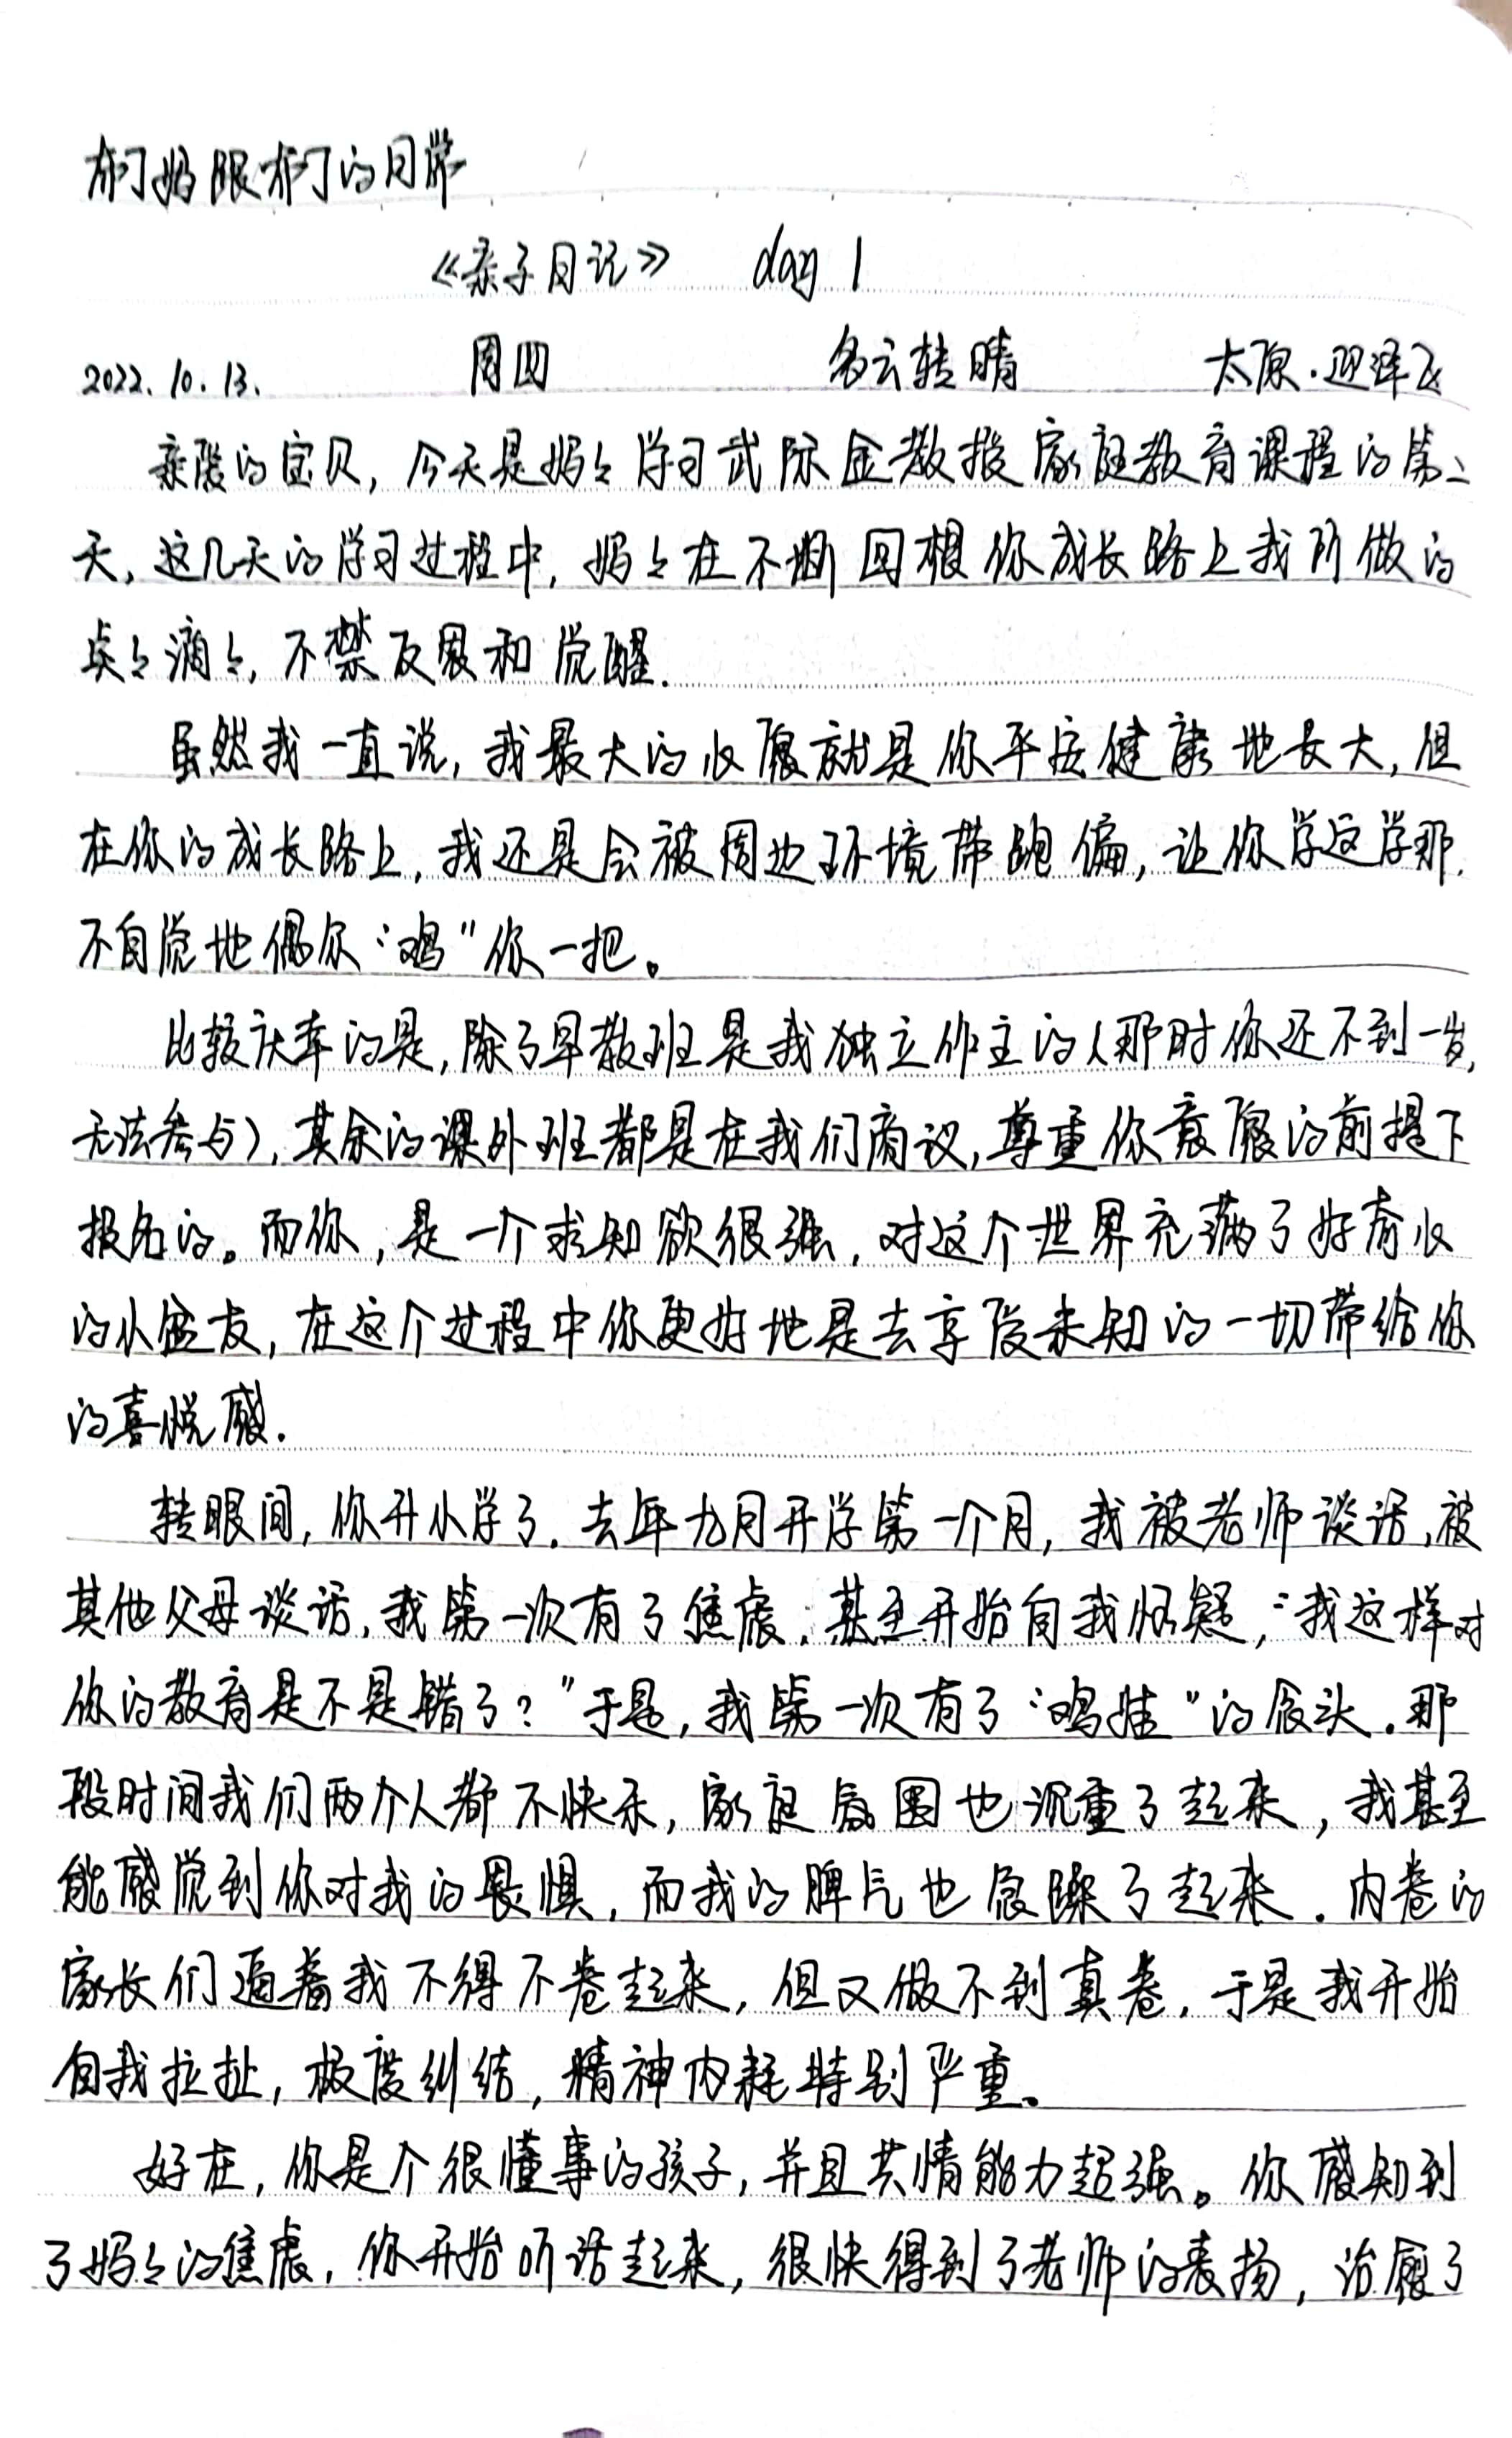 妈跟的日常
《亲子日记》 day 1
2022.10.13. 周四 多云转晴 太原·迎泽区
亲爱的宝贝,今天是妈々学习武际金教授家庭教育课程的第二
天,这几天的学习过程中,妈々在不断回想你成长路上我所做的
点々滴々,不禁反思和觉醒.
虽然我一直说,我最大的心愿就是你平安健康地长大,但
在你的成长路上,我还是会被周边环境带跑偏,让你学这学那.
不自觉地偶尔“鸡”你一把。
比较庆幸的是,除了早教班是我独立作主的(那时你还不到一岁,
无法参与),其余的课外班都是在我们商议,尊重你意愿的前提下
报名的。而你,是一个求知欲很强,对这个世界充满了好奇心
的小盆友,在这个过程中你更好地是去享受未知的一切带给你
的喜悦感.
转眼间,你升小学了.去年九月开学第一个月,我被老师谈话,被
其他父母谈话,我第一次有了焦虑,甚至开始自我怀疑,“我这样对
你的教育是不是错了?”于是,我第一次有了“鸡娃”的念头.那
段时间我们两个人都不快乐,家庭氛围也沉重了起来,我甚至
能感觉到你对我的畏惧,而我的脾气也急躁了起来.内卷的
家长们逼着我不得不卷起来,但又做不到真卷,于是我开始
自我拉扯,极度纠结,精神内耗特别严重。
好在,你是个很懂事的孩子,并且共情能力超强。你感知到
了妈々的焦虑,你开始听话起来,很快得到了老师的表扬,治愈了